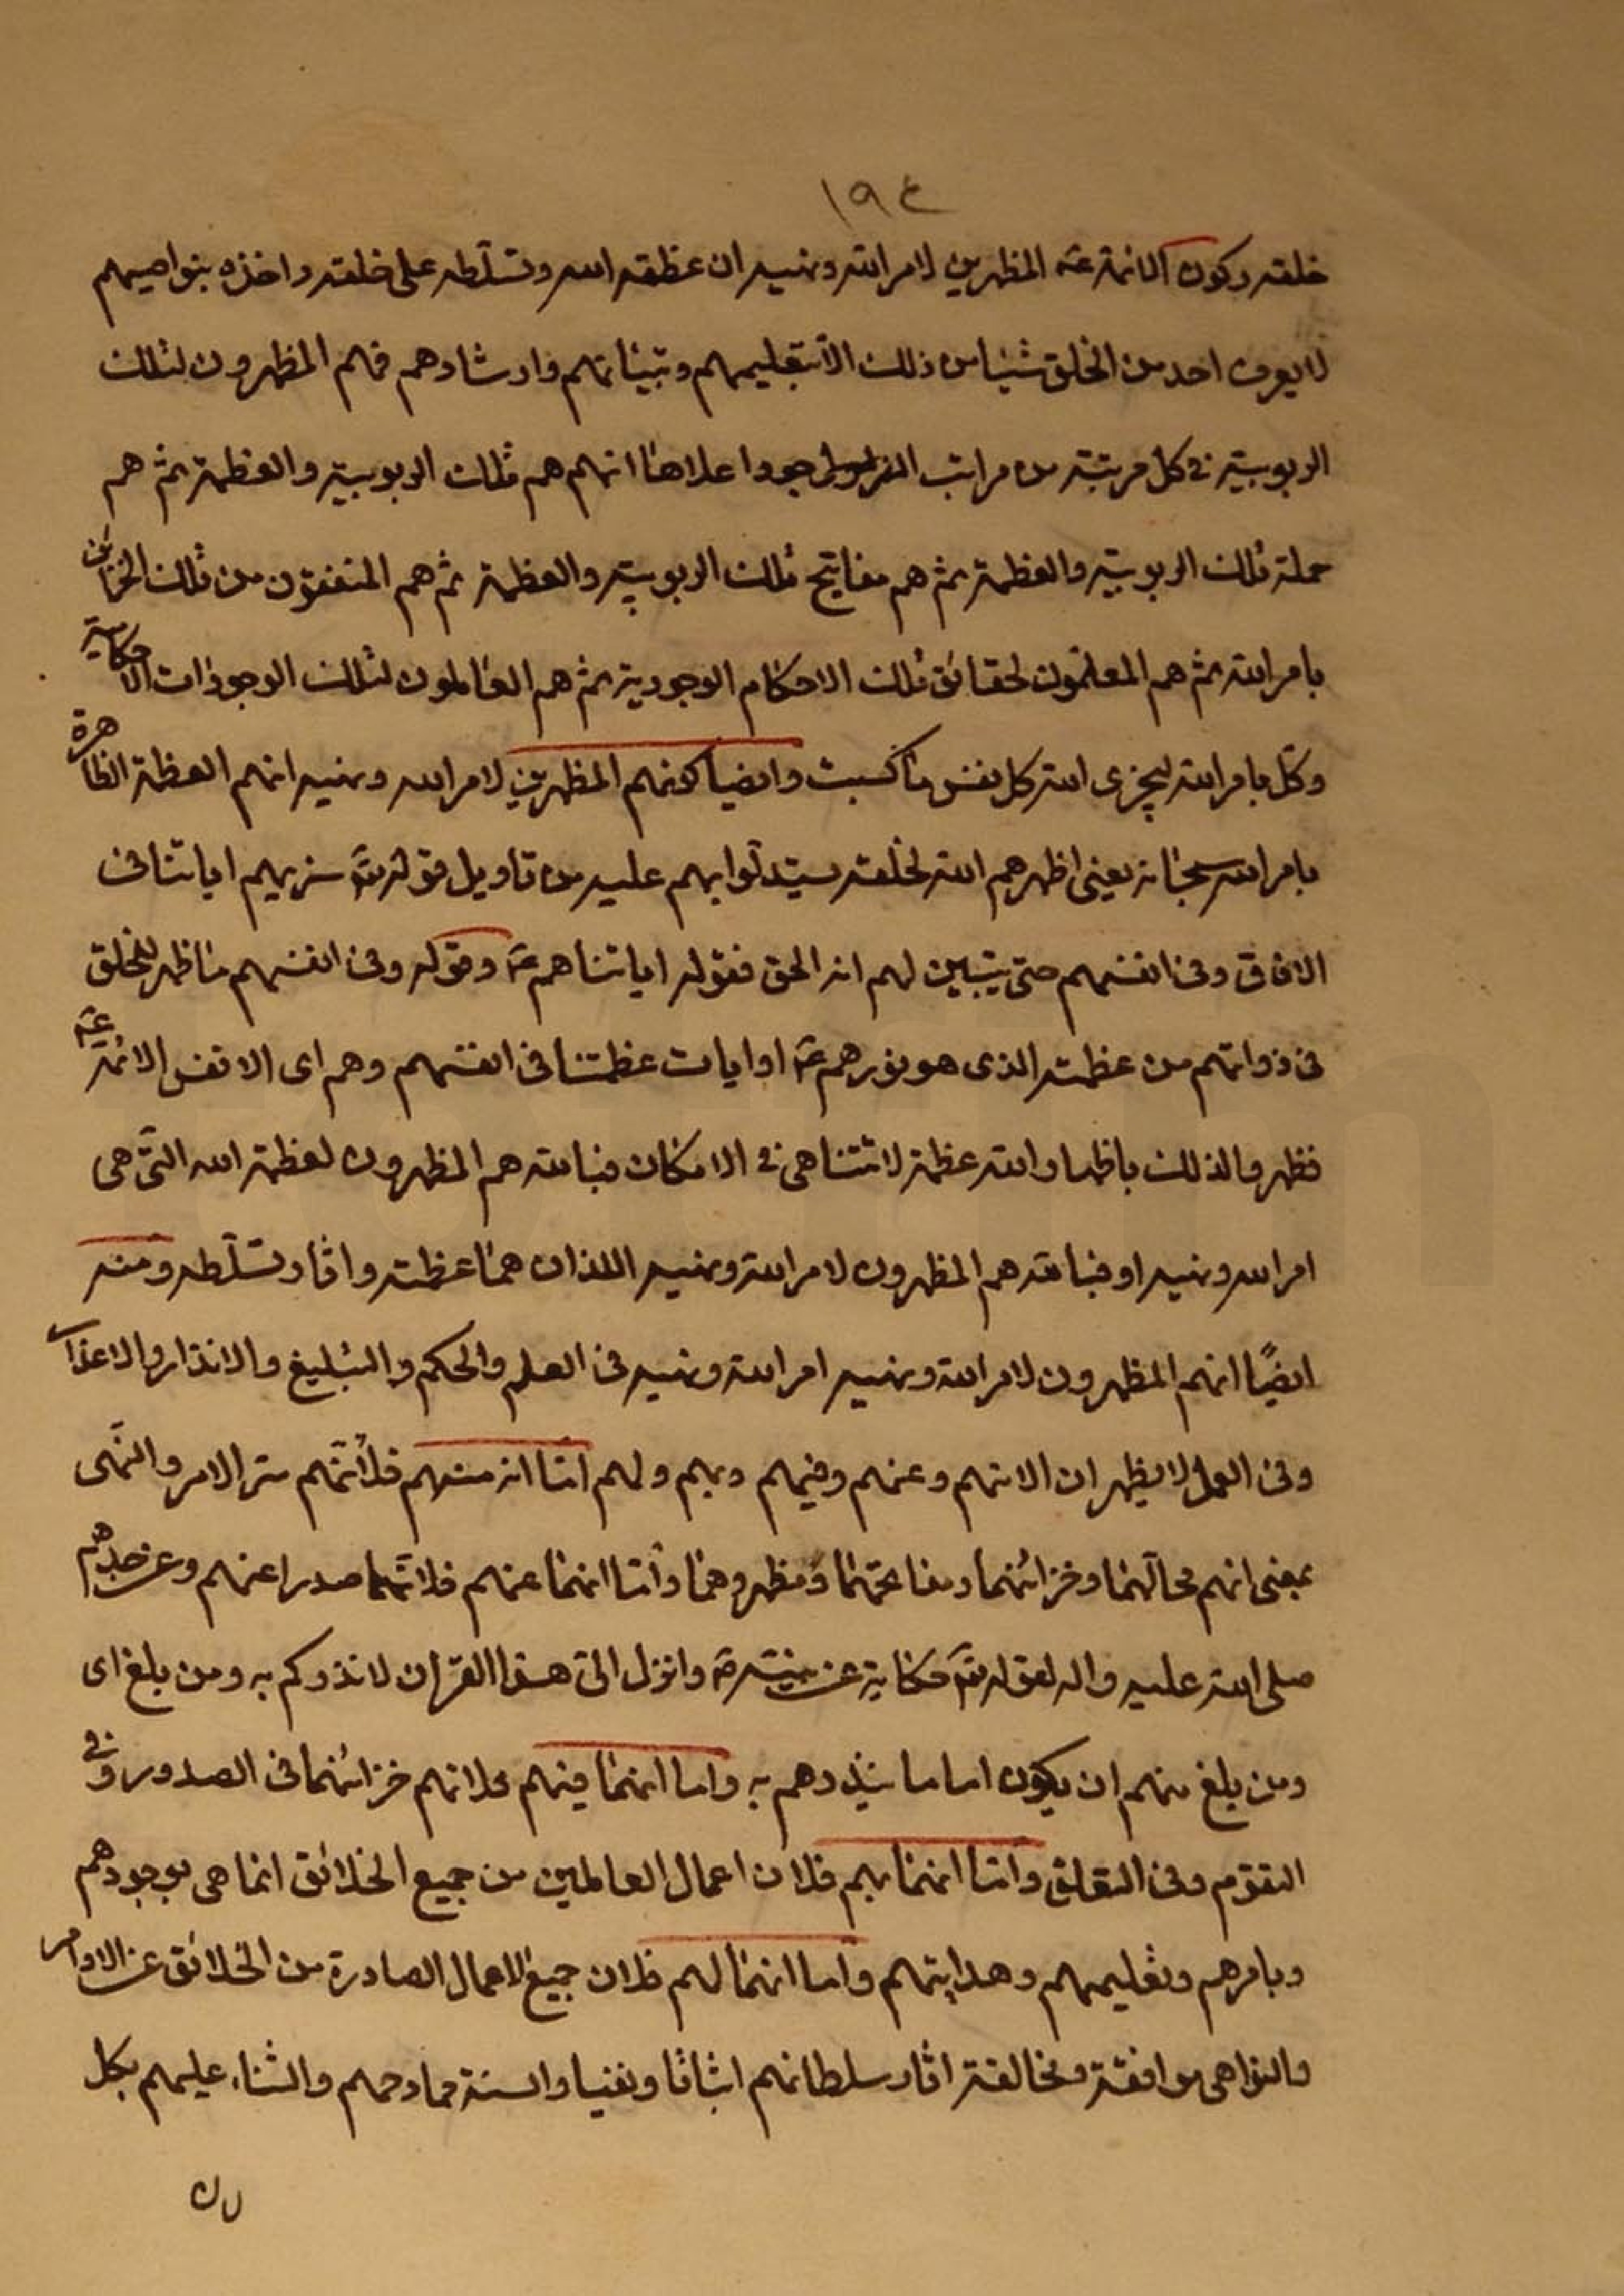 ١٩٤
خلقه وكون الائمة عـ المظهرين لامر الله ونهيه ان عظمة الله وتسلّطه على خلقه واخذه بنواصيهم
لا يعرف احد من الخلق شيئا من ذلك الّا بتعليمهم وتبيانهم وارشادهم فهم المظهرون لتلك
الربوبية فى كل مرتبة من مراتب وجودا علاها انهم هم تلك الربوبية والعظمة ثم هم
حملة تلك الربوبية والعظمة ثم هم مفاتيح تلك الربوبية والعظمة ثم هم المنفقون من تلك الخزائن
بامر الله ثم هم المعلمون لحقائق تلك الاحكام الوجودية ثم هم العاملون لتلك الوجودات الاحكامية
وكلّ بامر الله ليجزى الله كل نفس ما كسبت وايضا كونهم المظهرين لامر الله ونهيه انهم العظمة الظاهرة
بامر الله سبحانه يعنى اظهرهم الله لخلقه ليستدلّوا بهم عليه من تاويل قوله تعـ سنريهم اياتنا فى
الافاق وفى انفسهم حتى يتبين لهم انه الحق فقوله اياتنا هم عـ وقوله وفى انفسهم ما ظهر للخلق
فى ذواتهم من عظمته الذى هو نورهم عـ او ايات عظمتنا فى انفسهم وهم اى الانفس الائمة عـ
فظهروا لذلك باظهار الله عظمة لا تتناهى فى الامكان فبالله هم المظهرون لعظمة الله التى هى
امر الله ونهيه او فبالله هم المظهرون لامر الله ونهيه اللذان هما عظمته واثار تسلّطه ومنه
ايضًا انهم المظهرون لامر الله ونهيه امر الله ونهيه فى العلم والحكم والتبليغ والانذار والاعذار
وفى العمل لا يظهران الا منهم وعنهم وفيهم وبهم ولهم امّا انه منهم فلأنّهم سرّ الامر والنّهى
بمعنى انهم محالّهما وخزائنهما ومفاتحهما ومظهروهما وأمّا انهما عنهم فلانّهما صدرا عنهم وعن جدهم
صلى الله عليه واله لقوله تعـ حكاية عن نبيّه صـ وانزل الىّ هذا القرآن لانذركم به ومن بلغ اى
ومن بلغ منهم ان يكون اماما ينذرهم به واما انهما فيهم فلانهم خزائنهما فى الصدور وفى
التقوّم وفى التعلق وأمّا انهما بهم فلان اعمال العاملين من جميع الخلائق انما هى بوجودهم
وبامرهم وتعليمهم وهدايتهم وأما انهما لهم فلان جميع الاعمال الصادرة من الخلائق عن الاوامر
والنواهى موافقة ومخالفة اثار سلطانهم اثباتا ونفيا والسنة مادحهم والثناء عليهم بكل